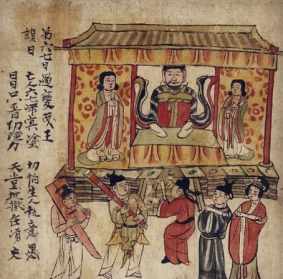 第六七日過變成王
讃曰
亡人六七滯冥塗 切怕生人執意愚
日日只看功德力 天堂地獄在湏臾